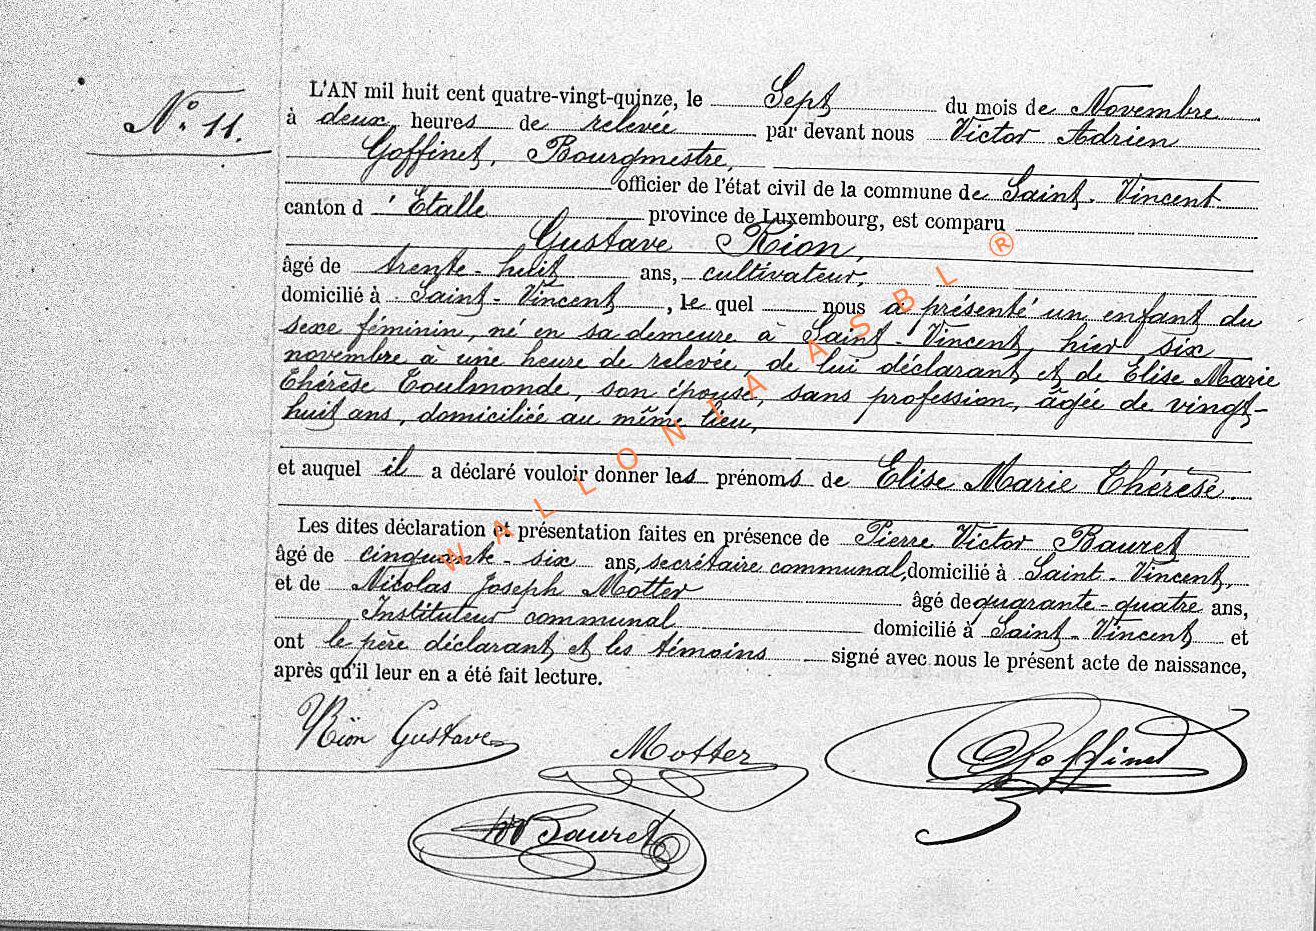 N° 11.
L'AN mil huit cent quatre-vingt-quinze, le Sept du mois de Novembre
à deux heures de relevée par devant nous Victor Adrien
Goffinet, Bourgmestre,
officier de l'état civil de la commune de Saint-Vincent
canton d'Etalle province de Luxembourg, est comparu
Gustave Rion,
âgé de trente-huit ans, cultivateur,
domicilié à Saint-Vincent, le quel nous a présenté un enfant du
sexe féminin, né en sa demeure à Saint-Vincent, hier six
novembre à une heure de relevée, de lui déclarant et de Elise Marie
Thérèse Toulmonde, son épouse, sans profession, âgée de vingt-
huit ans, domiciliée au même lieu,
et auquel il a déclaré vouloir donner les prénoms de Elise Marie Thérèse
Les dites déclaration et présentation faites en présence de Pierre Victor Bauret
âgé de cinquante-six ans, secrétaire communal, domicilié à Saint-Vincent,
et de Nicolas Joseph Motter âgé de quarante-quatre ans,
Instituteur communal domicilié à Saint-Vincent et
ont le père déclarant et les témoins signé avec nous le présent acte de naissance,
après qu'il leur en a été fait lecture.
Rion Gustave
Motter
Goffinet
Bauret
WALLONIA ASBL ®